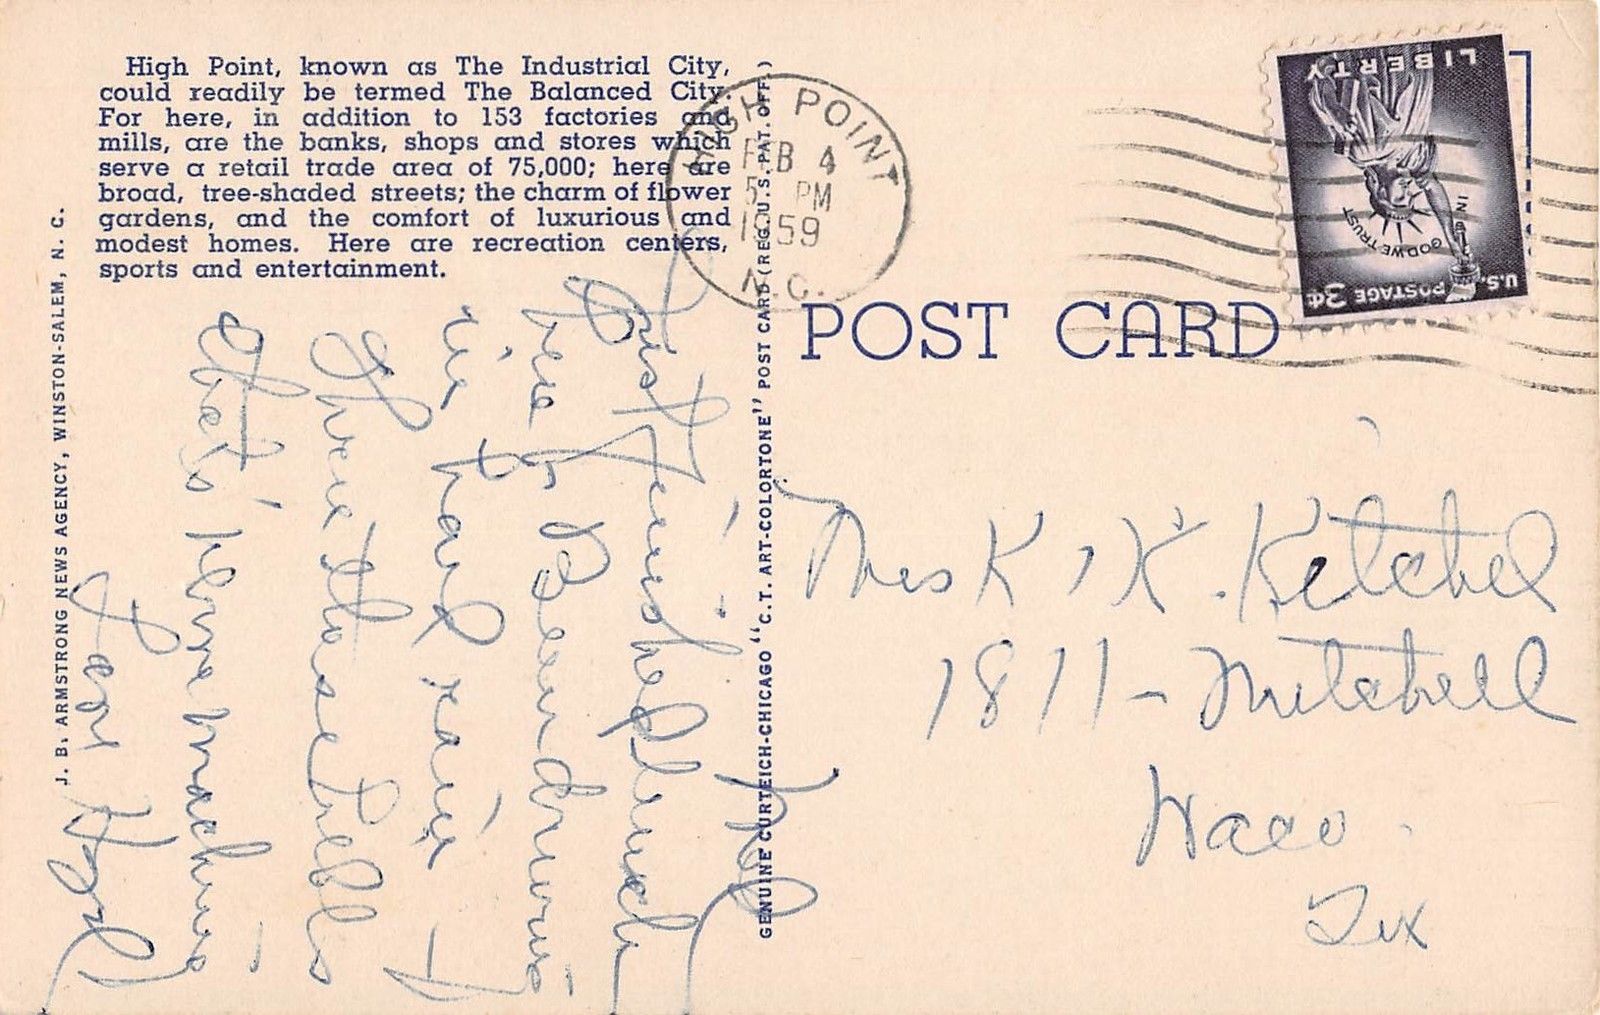 High Point, known as The Industrial City,
could readily be termed The Balanced City.
For here, in addition to 153 factories and
mills, are the banks, shops and stores which
serve a retail trade area of 75,000; here are
broad, tree-shaded streets; the charm of flower
gardens, and the comfort of luxurious and
modest homes. Here are recreation centers,
sports and entertainment.
J. B. ARMSTRONG NEWS AGENCY, WINSTON-SALEM, N. C.
GENUINE CURTEICH-CHICAGO "C.T. ART-COLORTONE" POST CARD (REG. U.S. PAT. OFF.)
HIGH POINT
FEB 4
5 PM
1959
N.C.
LIBERTY
IN GOD WE TRUST
U.S. POSTAGE 3¢
POST CARD
Just finished lunch
Been driving
in hard rain
thru those hills
that's plane machine
Hazel
Mrs K. K. Ketchel
1811 - Mitchell
Waco.
Tex